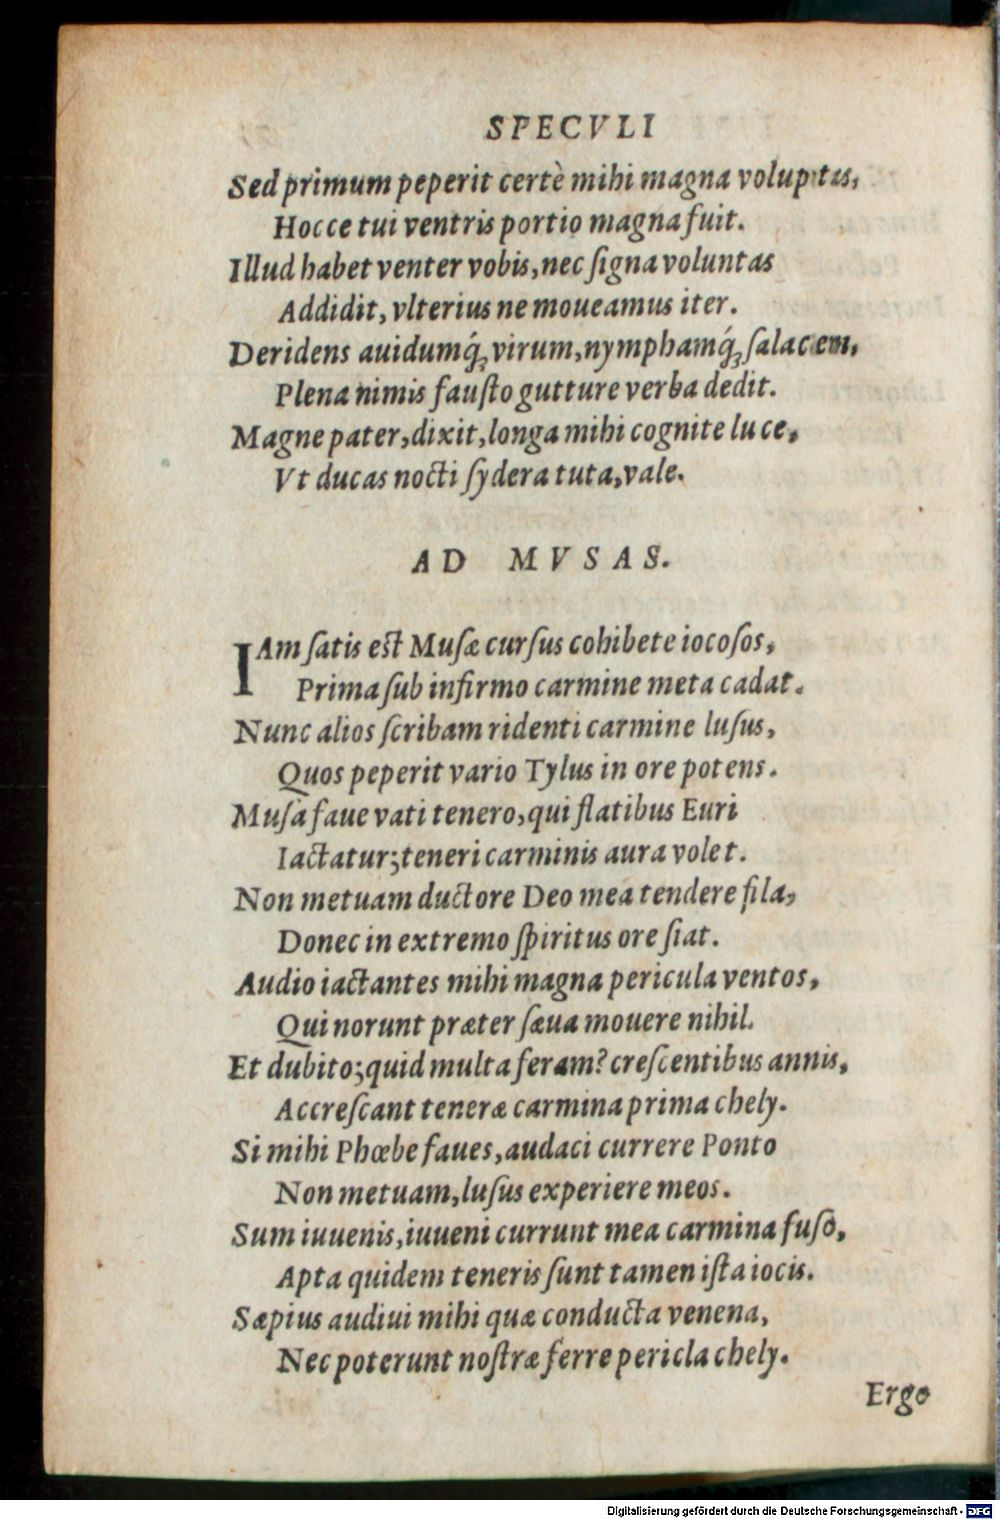 SPECVLI
Sed primum peperit certè mihi magna voluptas,
Hocce tui ventris portio magna fuit.
Illud habet venter vobis, nec ſigna voluntas
Addidit, vlterius ne moueamus iter.
Deridens auidumq́;, virum, nymphamq́; ſalacem,
Plena nimis fauſto gutture verba dedit.
Magne pater, dixit, longa mihi cognite luce,
Vt ducas nocti ſydera tuta, vale.
AD MVSAS.
IAm ſatis eſt Muſæ curſus cohibete iocoſos,
Prima ſub infirmo carmine meta cadat.
Nunc alios ſcribam ridenti carmine luſus,
Quos peperit vario Tylus in ore potens.
Muſa faue vati tenero, qui flatibus Euri
Iactatur; teneri carminis aura volet.
Non metuam ductore Deo mea tendere fila,
Donec in extremo ſpiritus ore ſiat.
Audio iactantes mihi magna pericula ventos,
Qui norunt præter ſæua mouere nihil.
Et dubito; quid multa feram? creſcentibus annis,
Accreſcant teneræ carmina prima chely.
Si mihi Phœbe faues, audaci currere Ponto
Non metuam, luſus experiere meos.
Sum iuuenis, iuueni currunt mea carmina fuſo,
Apta quidem teneris ſunt tamen iſta iocis.
Sæpius audiui mihi quæ conducta venena,
Nec poterunt noſtræ ferre pericla chely.
Ergo
Digitalisierung gefördert durch die Deutsche Forschungsgemeinschaft - DFG